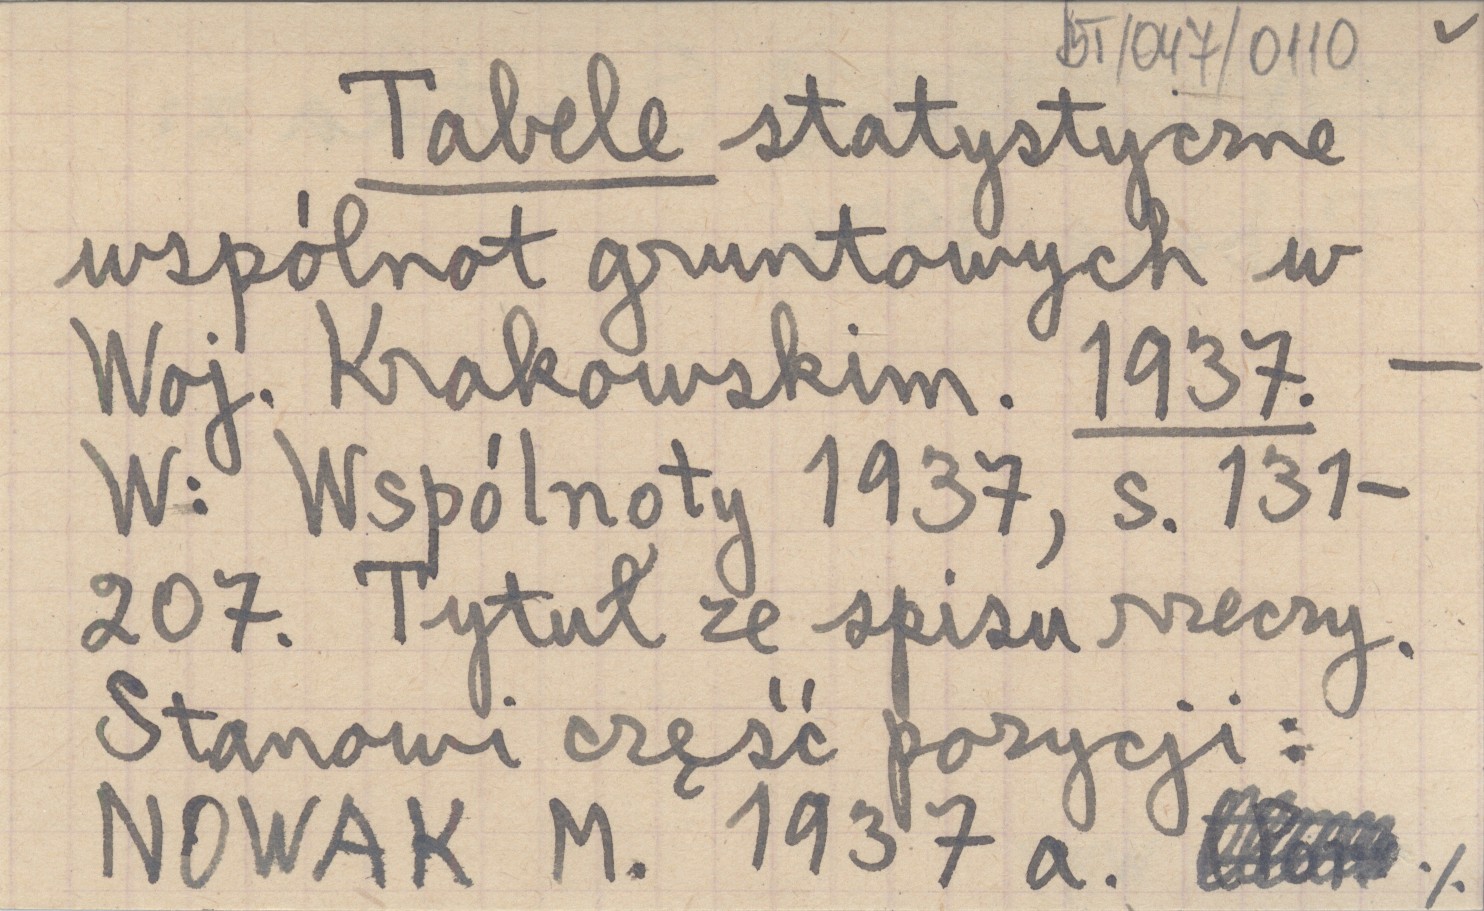 BT/047/0110 ✓
Tabele statystyczne
wspólnot gruntowych w
Woj. Krakowskim. 1937. —
W: Wspólnoty 1937, s. 131-
207. Tytuł ze spisu rzeczy.
Stanowi część pozycji:
NOWAK M. 1937 a. ./.